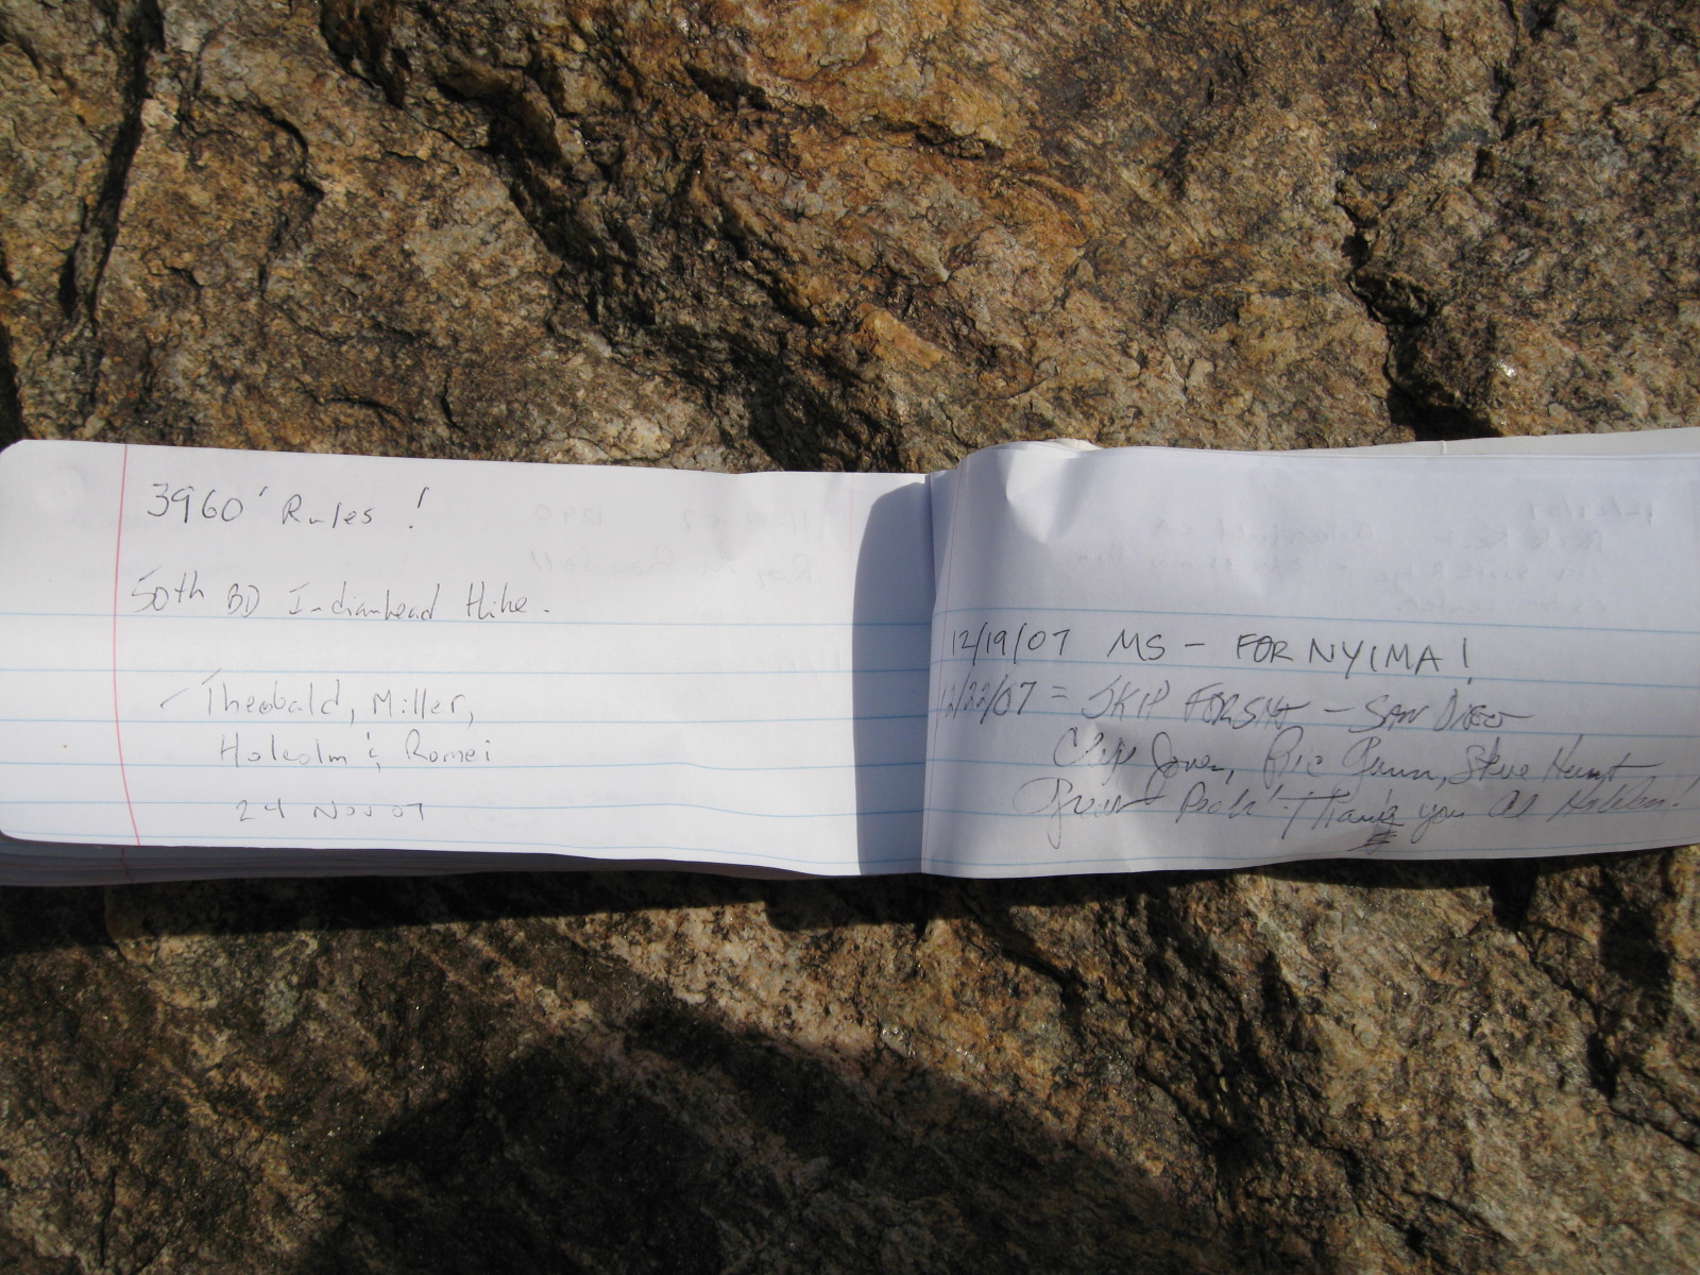 3960' Rules !
50th BD Indianhead Hike.
Theobald, Miller,
Holcolm & Romei
24 Nov 07
12/19/07 MS - FOR NYIMA!
12/22/07 = SKIP - SAN DIEGO
Jones, Ric Gunn, Steve Hunt
Great Peak! Thank you Al